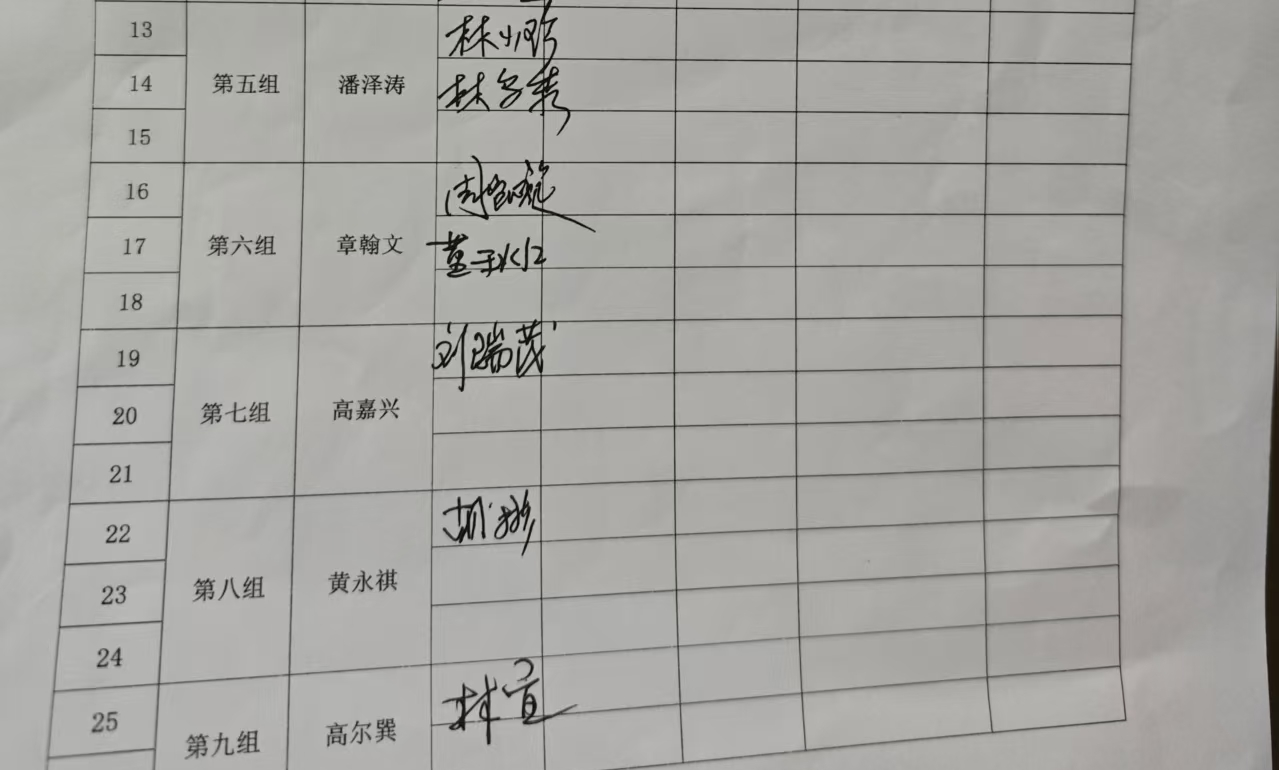 13 林小珍
14 第五组 潘泽涛 林
15
16 周
17 第六组 章翰文 董
18
19 刘瑞茂
20 第七组 高嘉兴
21
22 胡彬
23 第八组 黄永祺
24
25 林宣
第九组 高尔巽